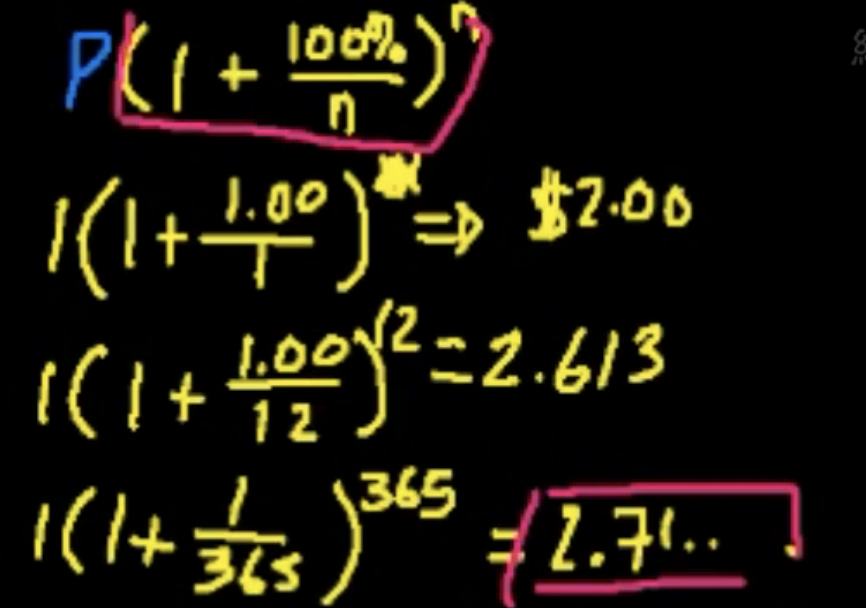 P(1 + 100%/n)^n
1(1 + 1.00/1) ⇒ $2.00
1(1 + 1.00/12)^12 = 2.613
1(1 + 1/365)^365 = 2.71..